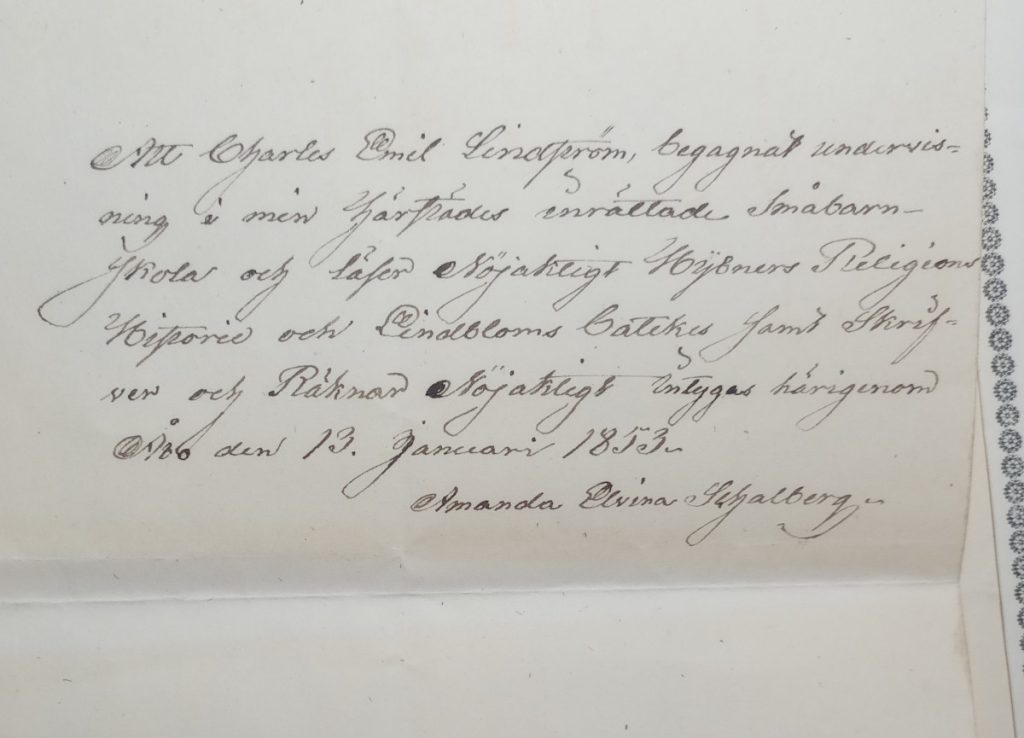 Att Charles Emil Lindström, begagnat undervis=
ning i min härstädes inrättade Småbarn-
skola och läser Nöjaktligt Hÿbners Religions
Historie och Lindbloms Catekes samt Skrif=
ver och Räknar Nöjaktligt intygas härigenom
Åbo den 13. Januari 1853.
Amanda Elvina Schalberg